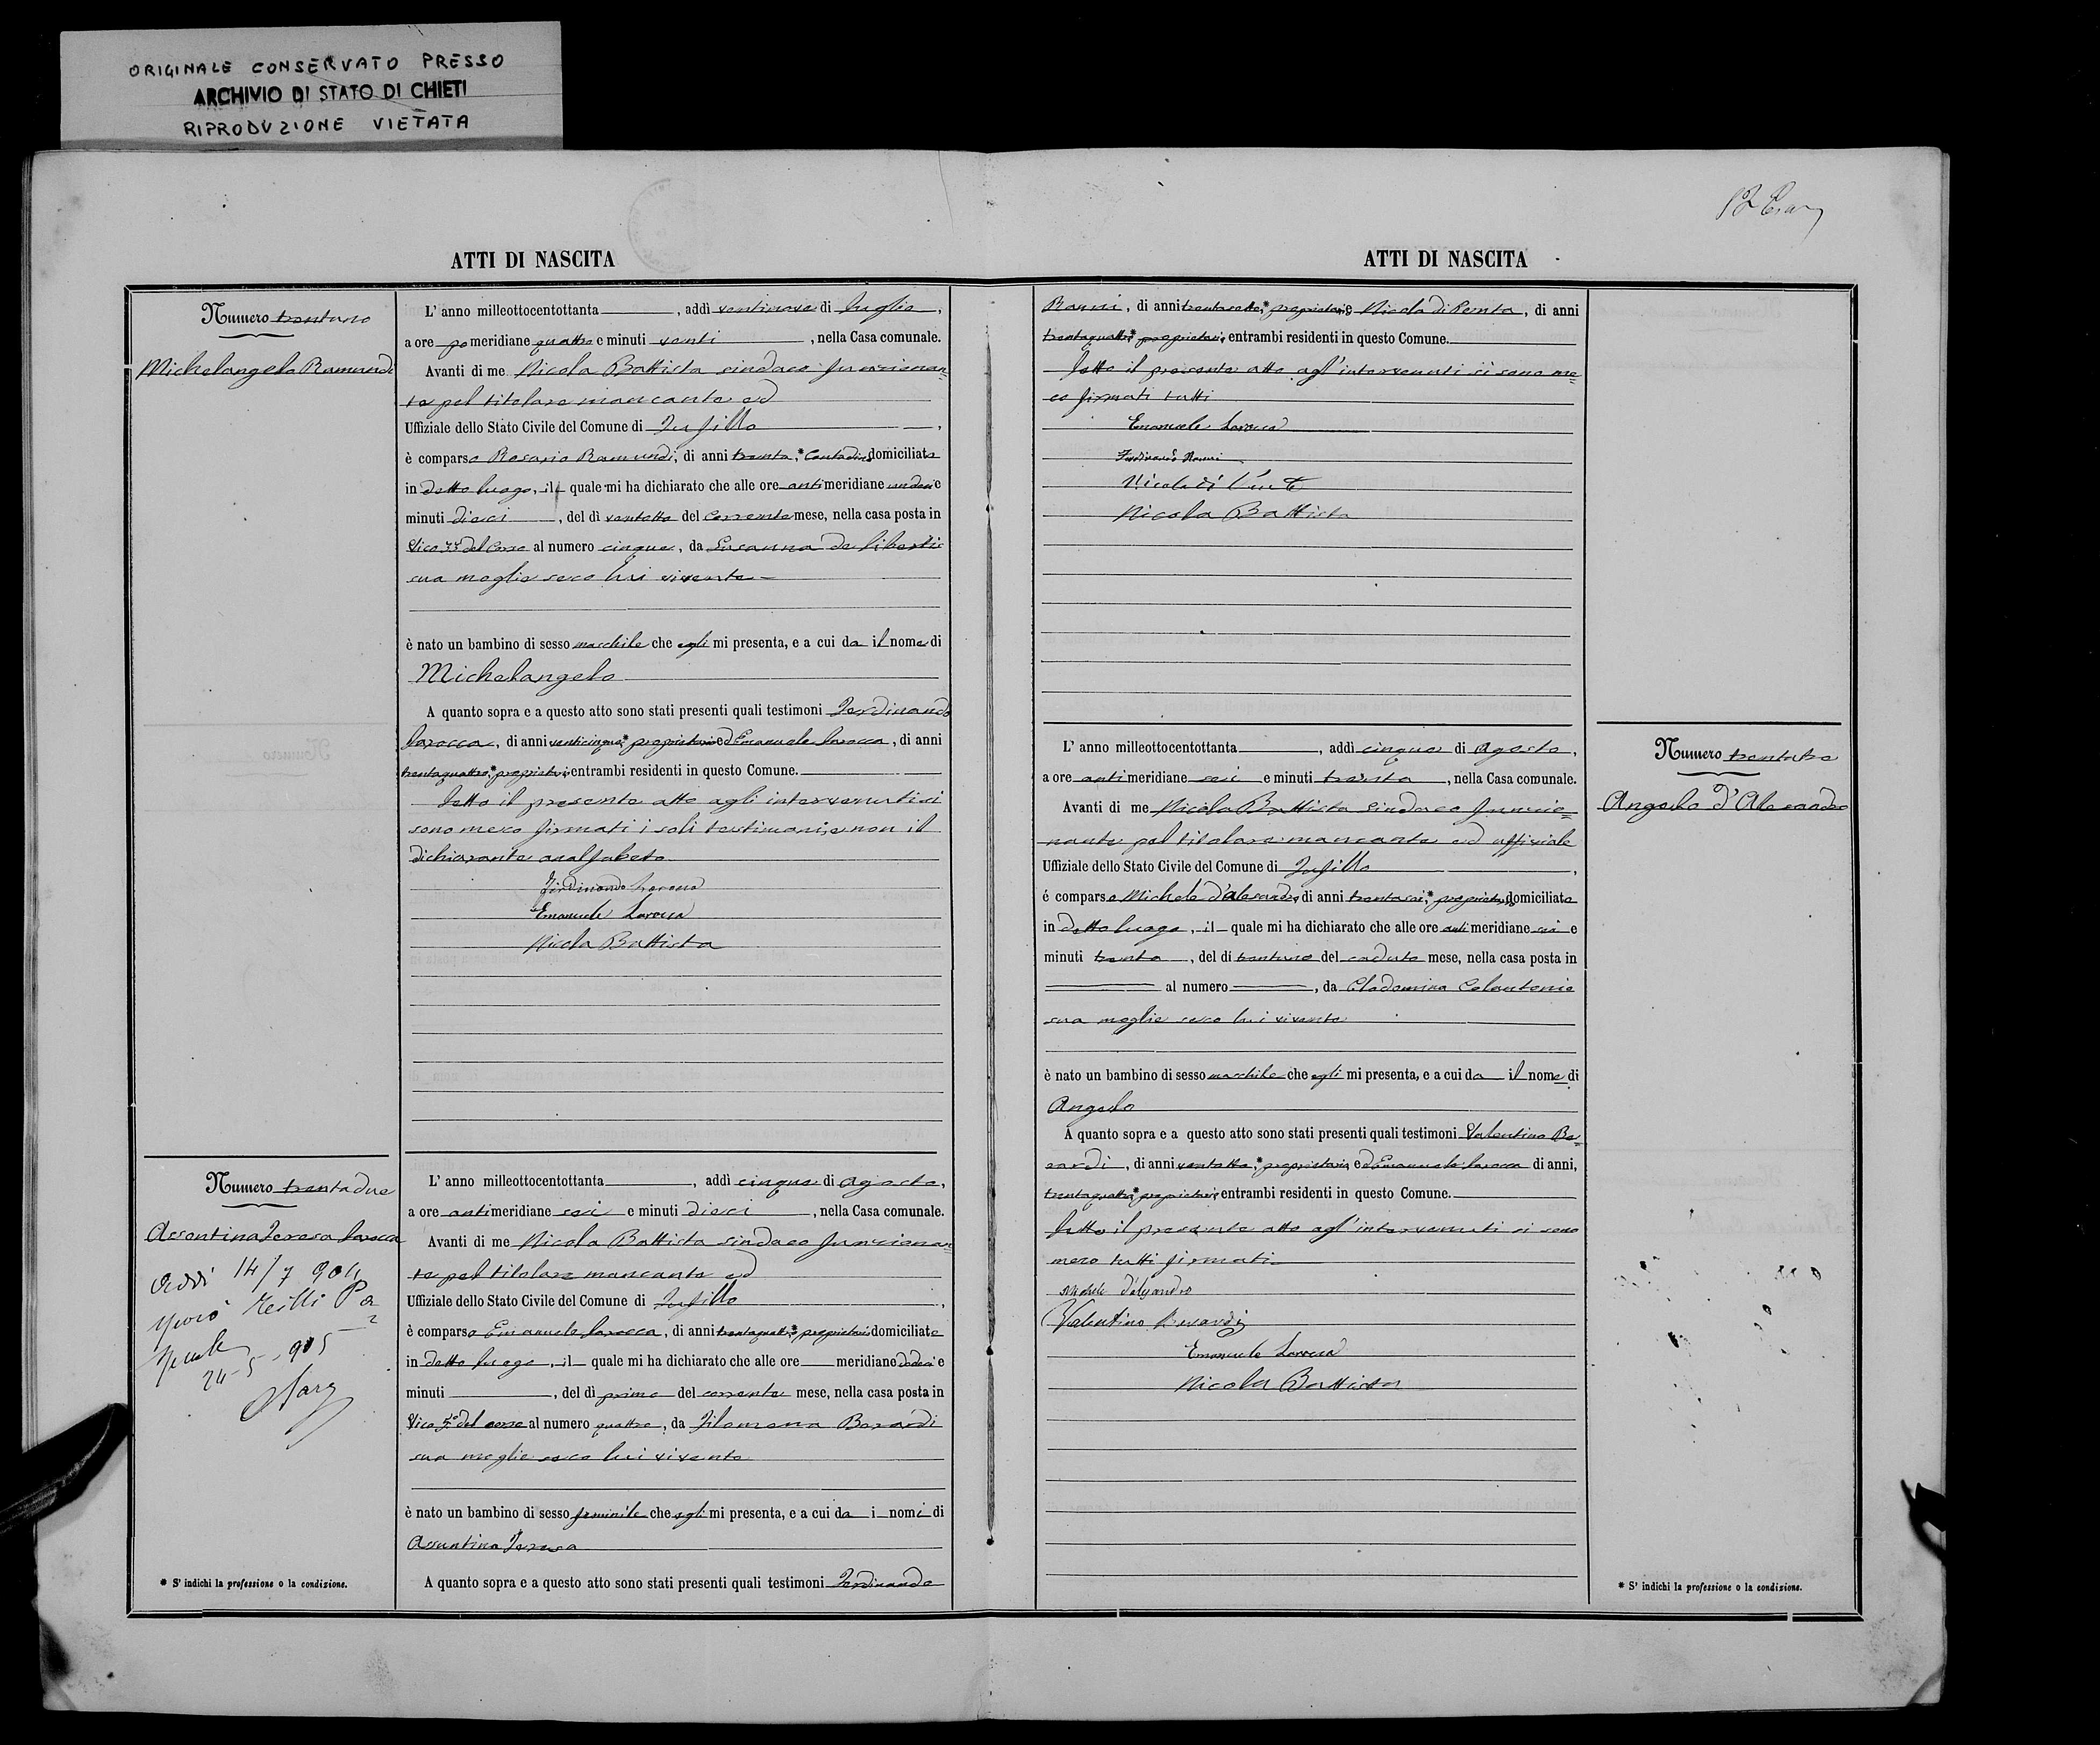 ORIGINALE CONSERVATO PRESSO
ARCHIVIO DI STATO DI CHIETI
RIPRODUZIONE VIETATA
ATTI DI NASCITA
Numero trentuno
Michelangelo Ramundi
L' anno milleottocentottanta, addì ventinove di luglio,
a ore pomeridiane quattro e minuti venti, nella Casa comunale.
Avanti di me Nicola Battista sindaco funzionan=
te pel titolare mancante ed
Uffiziale dello Stato Civile del Comune di Tufillo,
è comparso Rosario Ramundi, di anni trenta,* Contadino domiciliato
in detto luogo, il quale mi ha dichiarato che alle ore antimeridiane undici e
minuti dieci, del dì ventotto del corrente mese, nella casa posta in
Vico del Corso al numero cinque, da Susanna de Libertis
sua moglie seco lui vivente
è nato un bambino di sesso maschile che egli mi presenta, e a cui da il nome di
Michelangelo
A quanto sopra e a questo atto sono stati presenti quali testimoni Ferdinando
Larocca, di anni venticinque,* proprietario ed Emanuele Larocca, di anni
trentaquattro,* proprietario entrambi residenti in questo Comune.
Letto il presente atto agli intervenuti si
sono meco firmati i soli testimoni, e non il
dichiarante analfabeto
Ferdinando Larocca
Emanuele Larocca
Nicola Battista
Numero trentadue
Assontina Teresa Larocca
Addì 14/7 904
24-5-905
L' anno milleottocentottanta, addì cinque di Agosto,
a ore antimeridiane sei e minuti dieci, nella Casa comunale.
Avanti di me Nicola Battista sindaco funzionan=
te pel titolare mancante ed
Uffiziale dello Stato Civile del Comune di Tufillo,
è comparso Emanuele Larocca, di anni trentaquattro,* proprietario domiciliato
in detto luogo, il quale mi ha dichiarato che alle ore meridiane dodici e
minuti, del dì primo del corrente mese, nella casa posta in
Vico 5° del corso al numero quattro, da Filomena Berardi
sua moglie seco lui vivente
è nato un bambino di sesso feminile che egli mi presenta, e a cui da i nomi di
Assuntina Teresa
A quanto sopra e a questo atto sono stati presenti quali testimoni Ferdinando
* S' indichi la professione o la condizione.
ATTI DI NASCITA
Ranni, di anni trentasette,* proprietario e Nicola di Penta, di anni
trentaquattro,* proprietario, entrambi residenti in questo Comune.
Letto il presente atto agl'intervenuti si sono me=
co firmati tutti
Emanuele Larocca
Ferdinando Ranni
Nicola di Penta
Nicola Battista
Numero trentatre
Angelo d'Alesandro
L' anno milleottocentottanta, addì cinque di Agosto,
a ore antimeridiane sei e minuti trenta, nella Casa comunale.
Avanti di me Nicola Battista sindaco funzio=
nante pel titolare mancante ed uffiziale
Uffiziale dello Stato Civile del Comune di Tufillo,
é comparso Michele d'Alesandro, di anni trentasei,* proprietario, domiciliato
in detto luogo, il quale mi ha dichiarato che alle ore antimeridiane sei e
minuti trenta, del dì trentuno del caduto mese, nella casa posta in
al numero, da Cladomina Colantonio
sua moglie seco lui vivente
è nato un bambino di sesso maschile che egli mi presenta, e a cui da il nome di
Angelo
A quanto sopra e a questo atto sono stati presenti quali testimoni Valentino Be=
rardi, di anni ventotto,* proprietario, ed Emanuele Larocca di anni,
trentaquattro,* proprietario, entrambi residenti in questo Comune.
Letto il presente atto agl'intervenuti si sono
meco tutti firmati
Michele d'Alesandro
Valentino Berardi
Emanuele Larocca
Nicola Battista
* S' indichi la professione o la condizione.